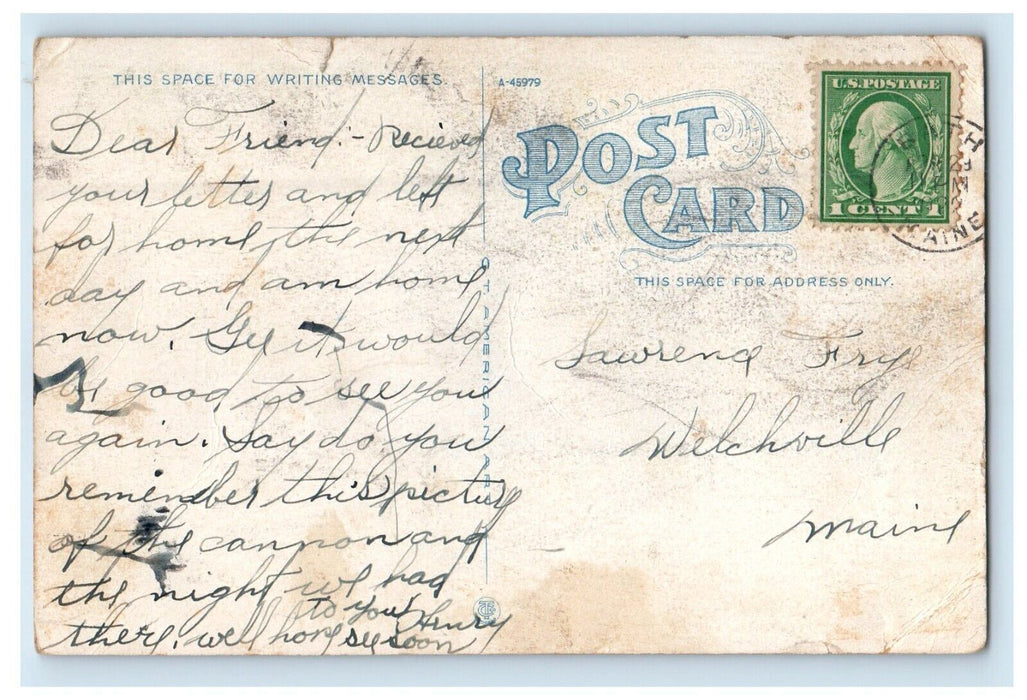 THIS SPACE FOR WRITING MESSAGES.
Dear Friend:- Recieved
your letter and left
for home the next
day and am home
now. Gee it would
be good to see you
again. Say do you
remember this picture
of the cannon and
the night we had
there. well hope to see you soon
Henry
A-45979
POST CARD
C. T. AMERICAN ART
THIS SPACE FOR ADDRESS ONLY.
U.S. POSTAGE
1 CENT 1
AINE
Lawrence Frye
Welchville
Maine